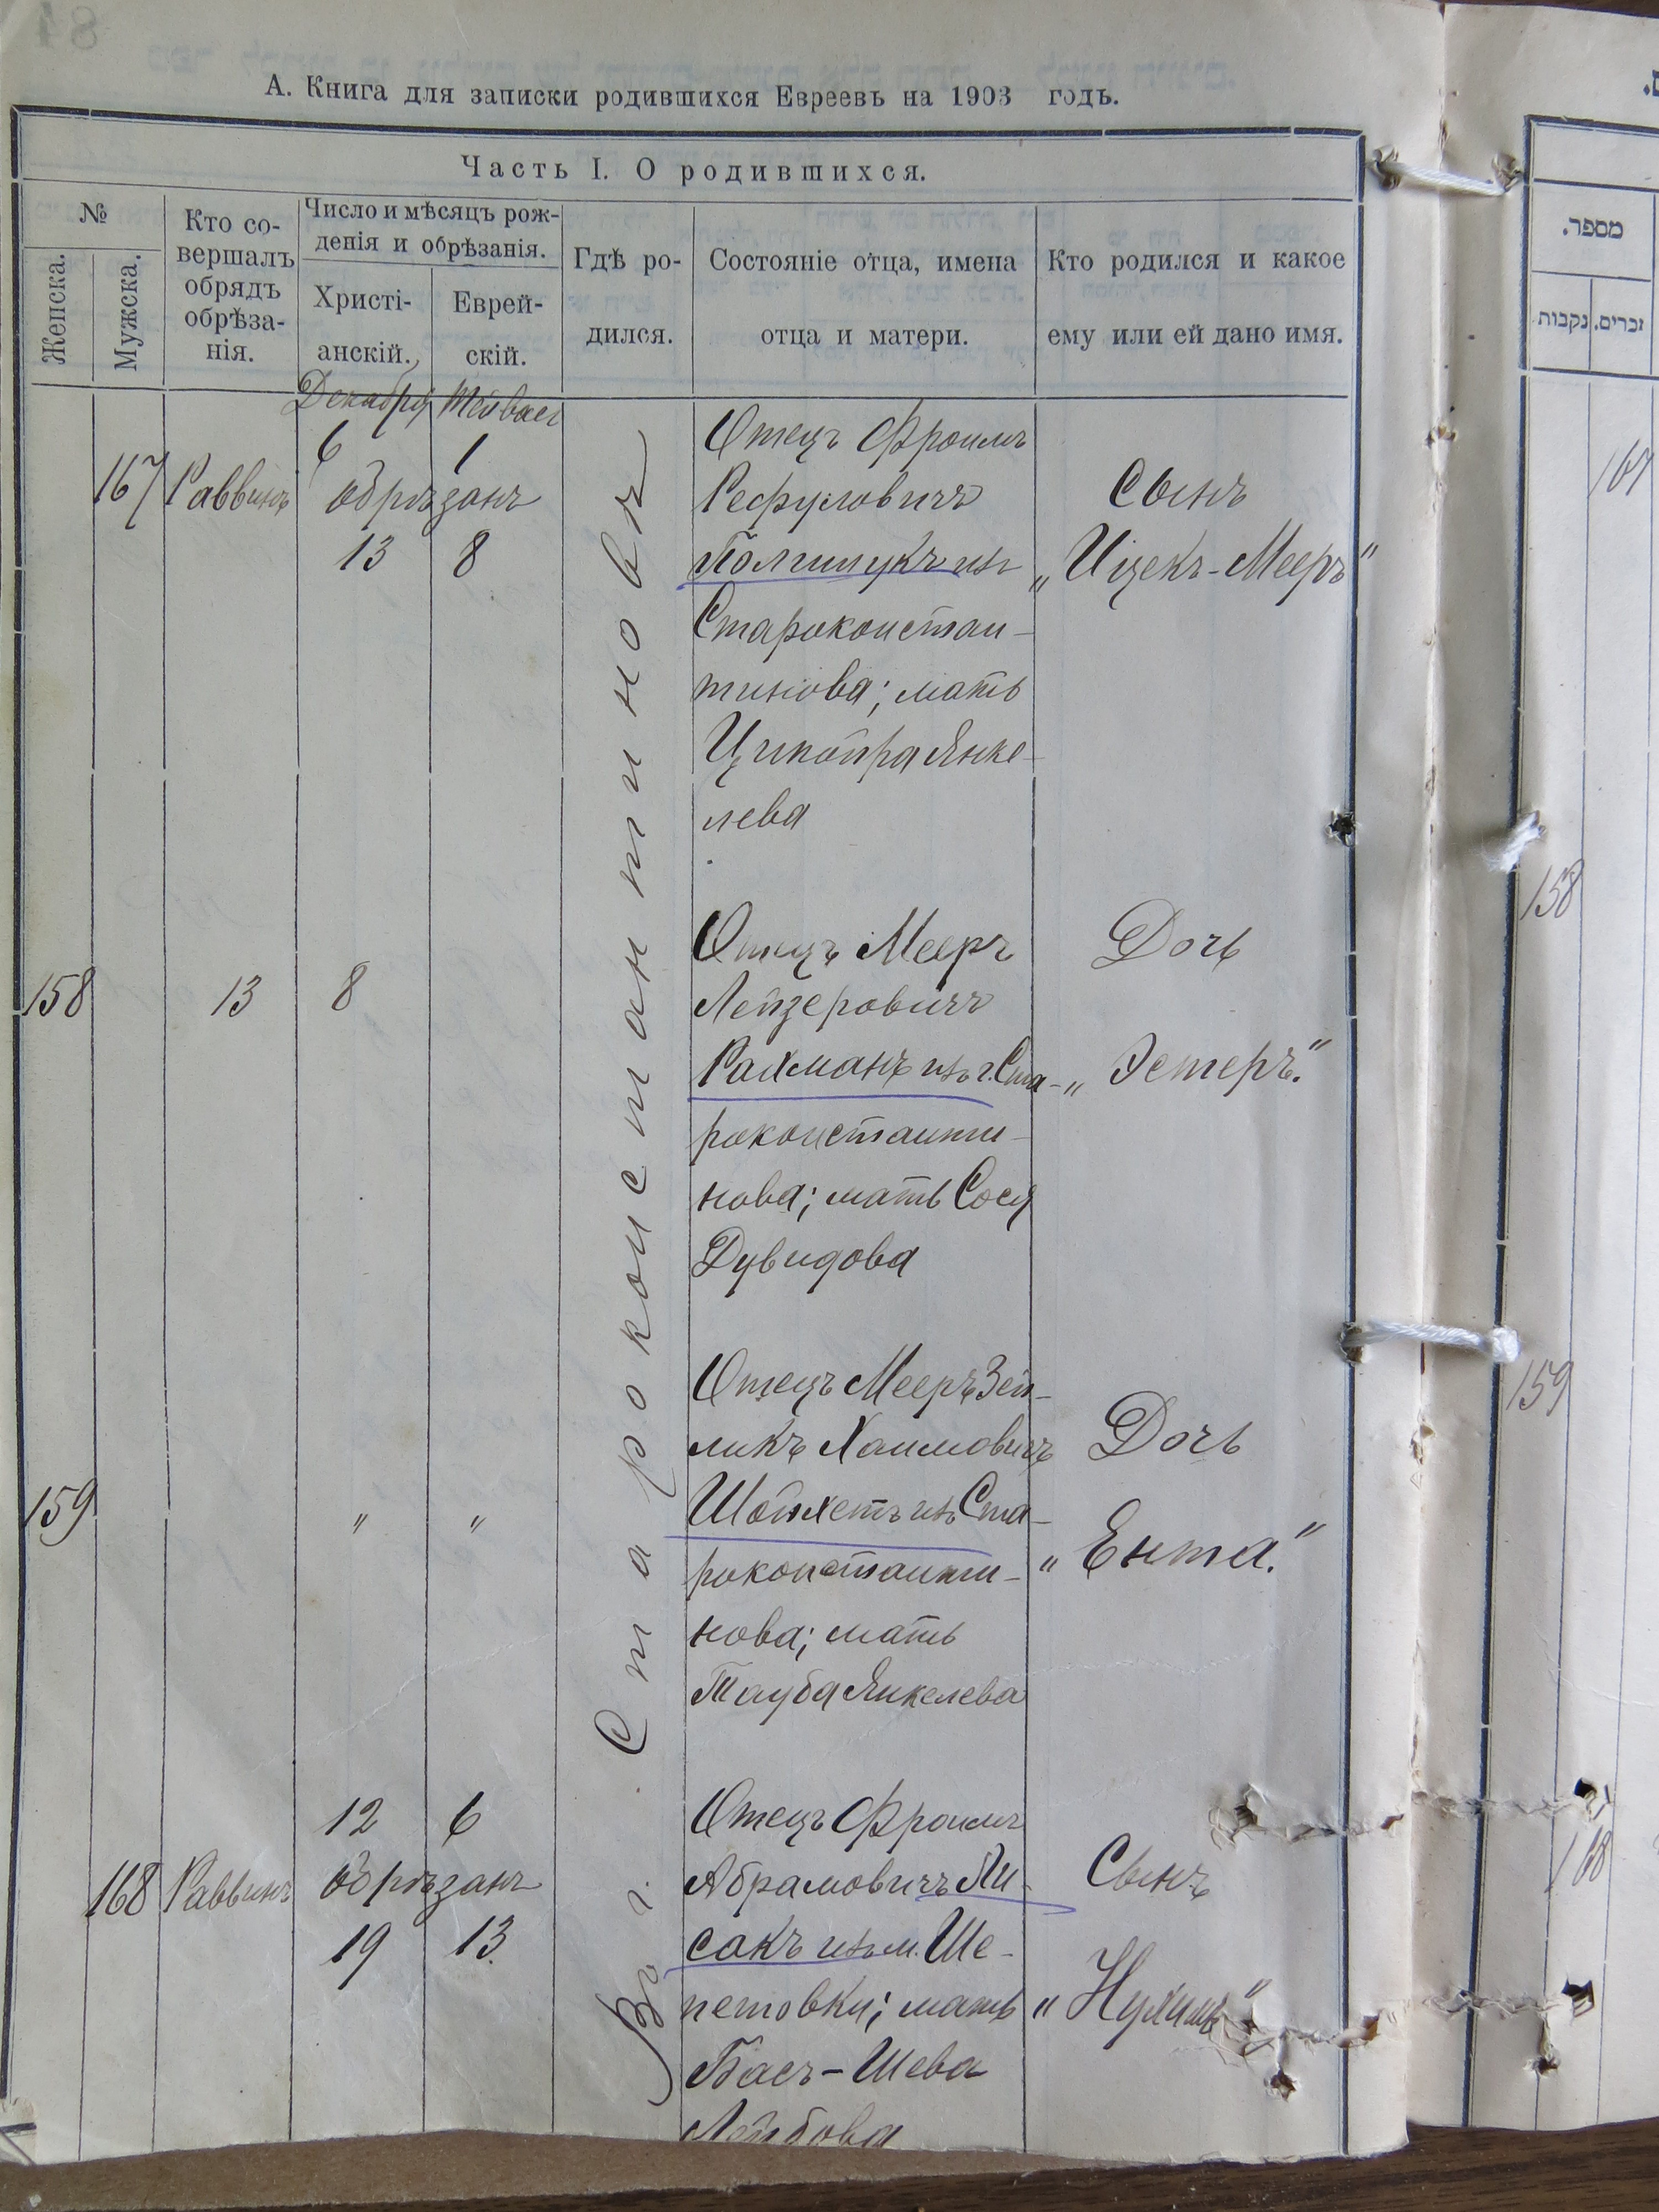 84
А. Книга для записки родившихся Евреевъ на 1903 годъ.
Часть I. О родившихся.
№
Женска.
Мужска.
Кто со-
вершалъ
обрядъ
обрѣза-
нія.
Число и мѣсяцъ рож-
денія и обрѣзанія.
Христі-
анскій.
Еврей-
скій.
Гдѣ ро-
дился.
Состояніе отца, имена
отца и матери.
Кто родился и какое
ему или ей дано имя.
Декабря Тейвасъ
6 1
167 Раввинъ обрѣзанъ
13 8
Въ г. Староконстантиновѣ
Отецъ Фроимъ
Рефуловичъ
Полищукъ изъ
Староконстан-
тинова; мать
Ципойра Янке-
лева
Сынъ
„Ицекъ-Мееръ"
158 13 8
Отецъ Мееръ
Лейзеровичъ
Рахманъ изъ г. Ста-
роконстанти-
нова; мать Сося
Дувидова
Дочь
„Эстеръ."
159 " "
Отецъ Мееръ Зей-
ликъ Хаимовичъ
Шойхетъ изъ Ста-
роконстанти-
нова; мать
Тауба Янкелева
Дочь
„Ента."
12 6
168 Раввинъ обрѣзанъ
19 13
Отецъ Фроимъ
Абрамовичъ Ли-
сакъ изъ м. Ше-
петовки; мать
Бася-Шева
Лейбова
Сынъ
„Нухимъ"
מספר.
זכרים.
נקבות
167
158
159
168